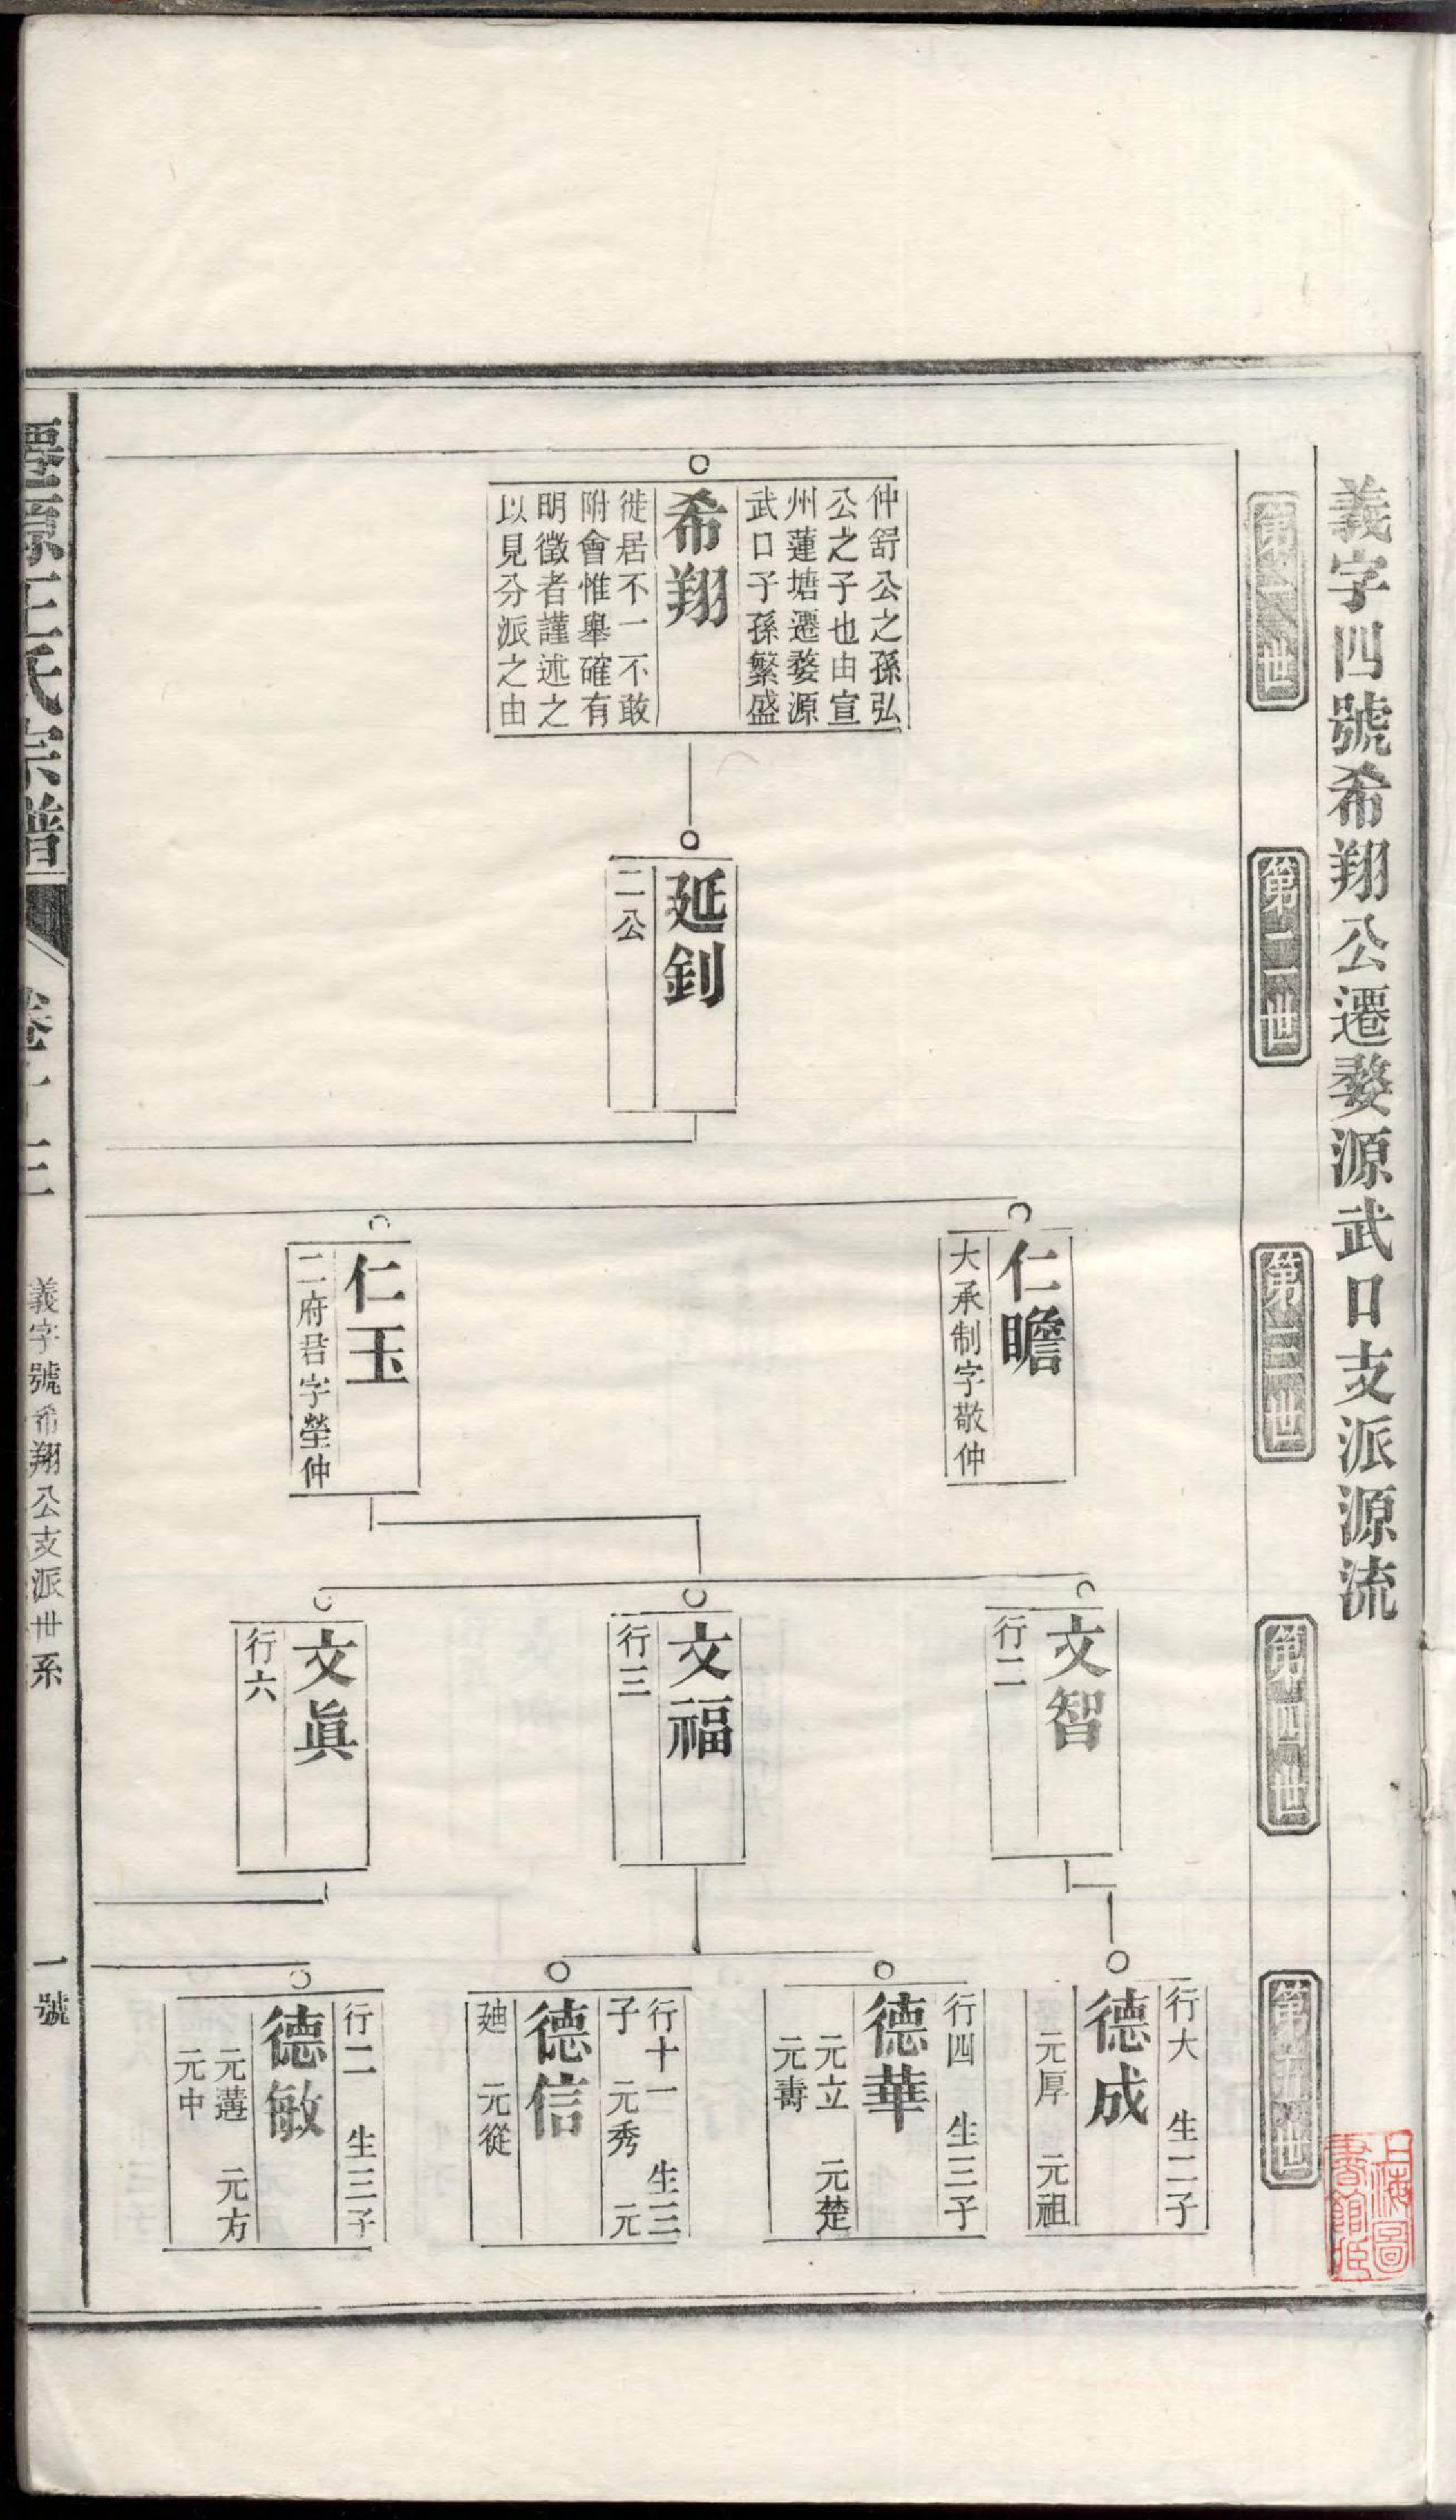 義字四號希翔公遷婺源武口支派源流
第一世
第二世
第三世
第四世
第五世
仲舒公之孫弘
公之子也由宣
州蓮塘遷婺源
武口子孫繁盛
希翔
徙居不一不敢
附會惟舉確有
明徵者謹述之
以見分派之由
延釗
二公
仁瞻
大承制字敬仲
仁玉
二府君字塋仲
文智
行二
文福
行三
文眞
行六
行大 生二子
德成
元厚 元祖
行四 生三子
德華
元立 元楚
元壽
行十一 生三
子 元秀 元
德信
廸 元從
行二 生三子
德敏
元遘 元方
元中
王氏宗譜
卷十二
義字號希翔公支派世系
一號
上海圖
書館